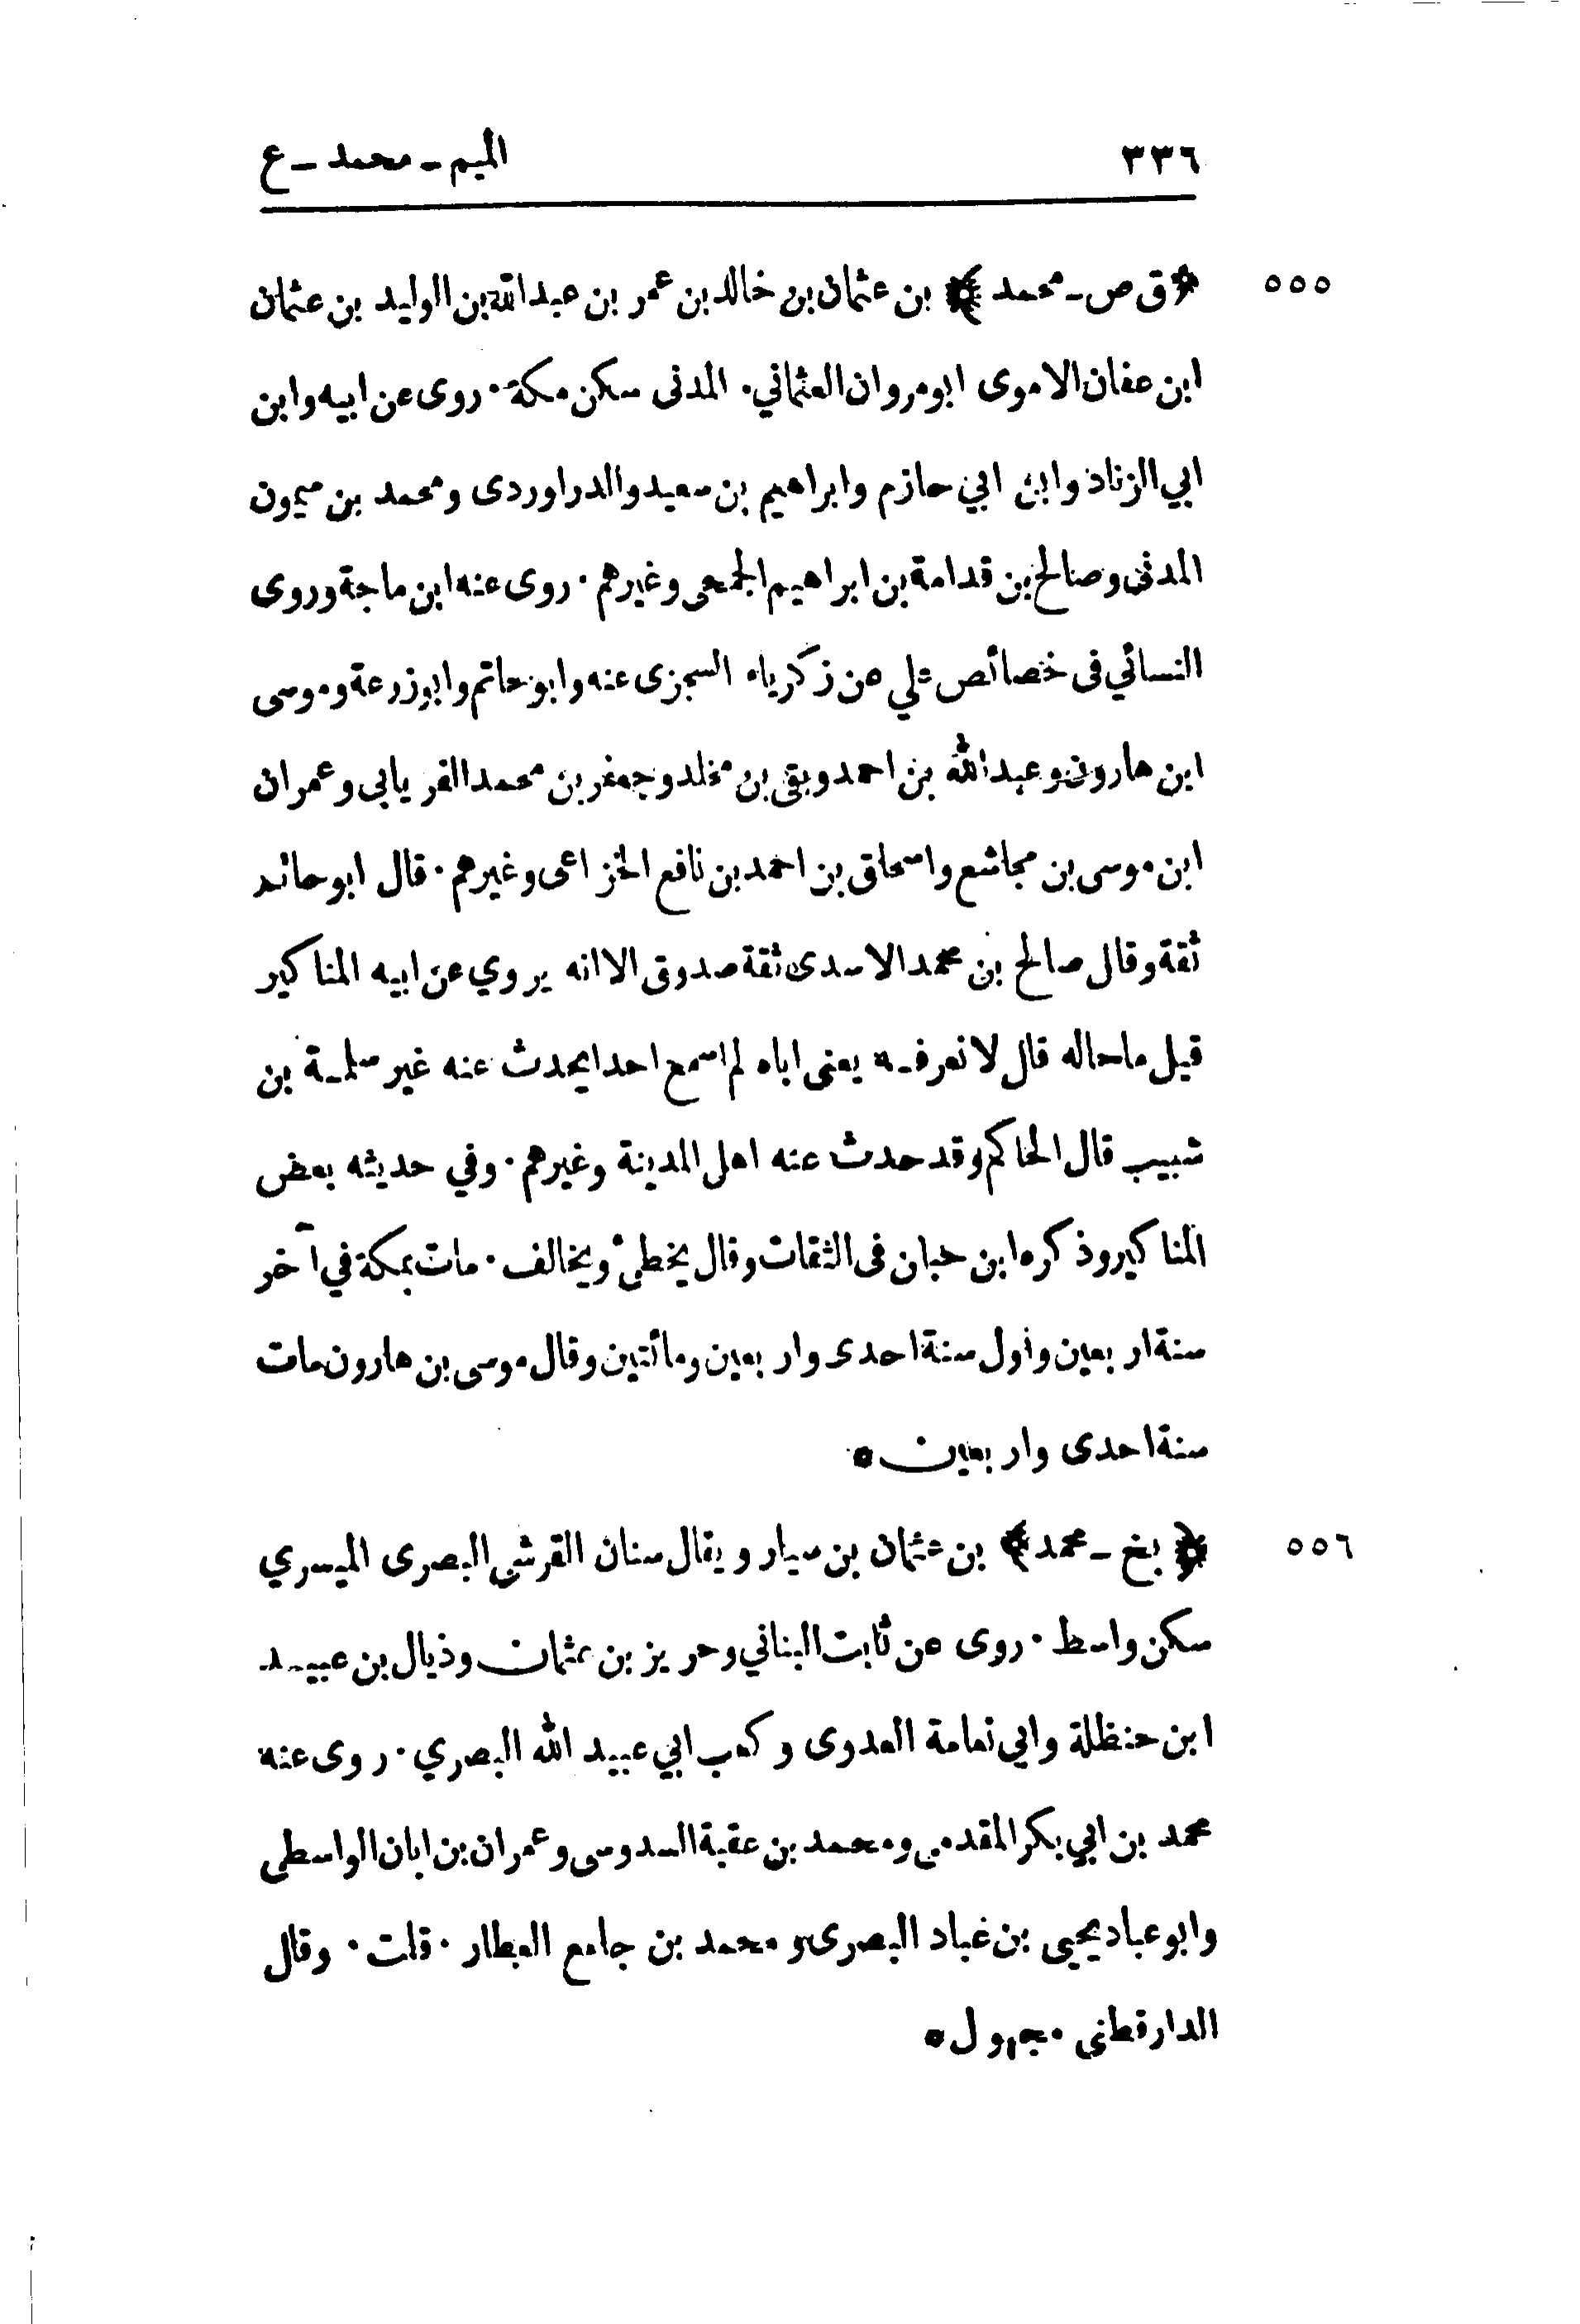 ٣٣٦ الميم - محمد - ع
٥٥٥ ﴿ ق ص - محمد ﴾ بن عثمان بن خالد بن عمر بن عبد الله بن الوليد بن عثمان
ابن عفان الاموى ابو مروان العثماني · المدنى سكن مكة · روى عن ابيه وابن
ابي الزناد وابن ابي حازم وابراهيم بن سعيد والدراوردى ومحمد بن ميمون
المدنى وصالح بن قدامة بن ابراهيم الجمحى وغيرهم · روى عنه ابن ماجة وروى
النسائي فى خصائص علي عن زكرياء السجزى عنه وابو حاتم وابو زرعة وموسى
ابن هارون وعبد الله بن احمد وبقى بن مخلد وجعفر بن محمد الفريابى وعمران
ابن موسى بن مجاشع واسحاق بن احمد بن نافع الخزاعى وغيرهم · قال ابو حاتم
ثقة وقال صالح بن محمد الاسدى ثقة صدوق الا انه يروي عن ابيه المناكير
قيل ما حاله قال لا نعرفه يعنى اباه لم اسمع احدا يحدث عنه غير سلمة بن
شبيب قال الحاكم وقد حدث عنه اهل المدينة وغيرهم · وفي حديثه بعض
المناكير وذكره ابن حبان فى الثقات وقال يخطئ ويخالف · مات بمكة في آخر
سنة اربعين واول سنة احدى واربعين ومائتين وقال موسى بن هارون مات
سنة احدى واربعين ه
٥٥٦ ﴿ بخ - محمد ﴾ بن عثمان بن سيار ويقال سنان القرشى البصرى الميسري
سكن واسط · روى عن ثابت البناني وحريز بن عثمان وذيال بن عبيد
ابن حنظلة وابي نعامة العدوى وكعب ابي عبيد الله البصري · روى عنه
محمد بن ابي بكر المقدمى ومحمد بن عقبة السدوسى وعمران بن ابان الواسطى
وابو عباد يحيى بن عباد البصرى ومحمد بن جامع العطار · قلت · وقال
الدارقطنى مجهول ه